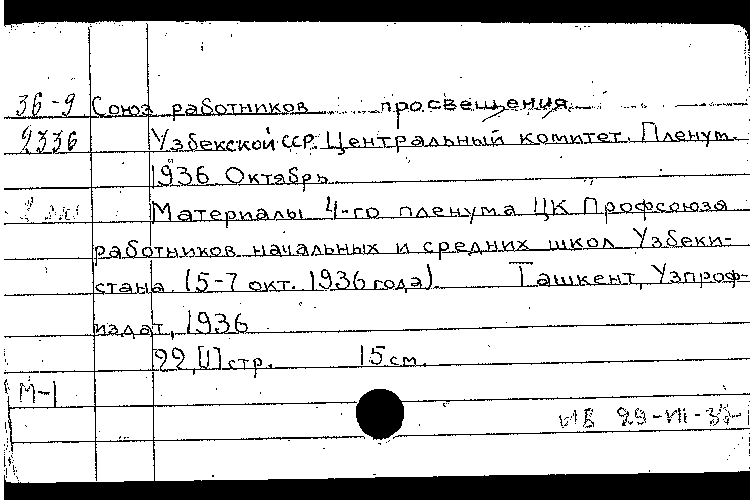 36-9 Союз работников просвещения
2336 Узбекской ССР. Центральный комитет. Пленум.
1936. Октябрь.
Материалы 4-го пленума ЦК Профсоюза
работников начальных и средних школ Узбеки-
стана. (5-7 окт. 1936 года). Ташкент, Узпроф-
издат, 1936
22, [1] стр. 15 см.
М-1
29-VII-37